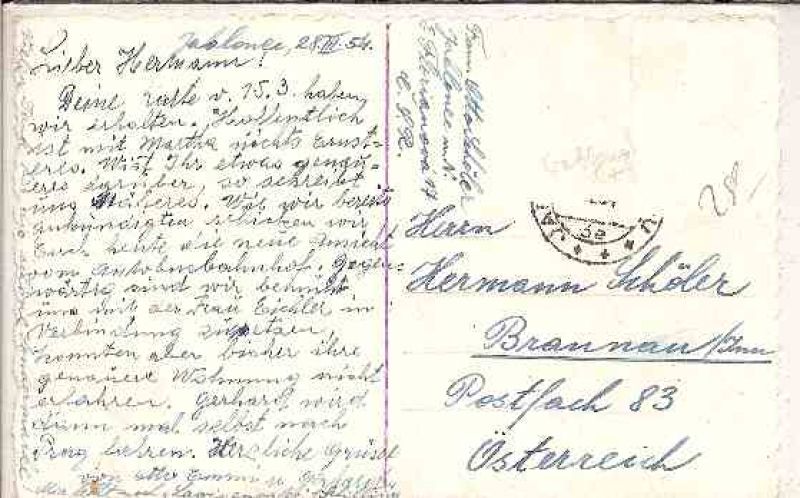 Jablonec, 28.III.54.
Lieber Hermann!
Deine Karte v. 15.3. haben
wir erhalten. Hoffentlich
ist mit Martha nichts Ernst-
eres. Wißt Ihr etwas genau-
eres darüber, so schreibt
uns Näheres. Wie wir bereits
ankündigten schicken wir
Euch heute die neue Ansicht
vom Autobusbahnhof. Gegen-
wärtig sind wir bemüht
uns mit der Frau Eichler in
Verbindung zu setzen,
konnten aber bisher ihre
genauere Wohnung nicht
erfahren. Gerhard wird
dann mal selbst nach
Prag fahren. Herzliche Grüsse
von Otto Emmi u. Gerhard
Otto Schöler
Jablonec n. N.
17
Č.S.R.
28
Herrn
Hermann Schöler
Braunau/Inn
Postfach 83
Österreich